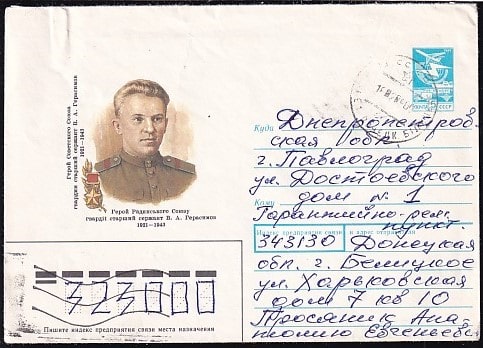 Герой Советского Союза
гвардии старший сержант В. А. Герасимов
1921—1943
Герой Радянського Союзу
гвардії старший сержант В. А. Герасимов
1921—1943
ПОЧТА СССР
Куда Днепропетров-
ская обл
г. Павлоград
ул. Достоевского
дом № 1
Кому
Гарантийно-рем.
пункт.
Индекс предприятия связи и адрес отправителя
343130 Донецкая
обл. г. Белицкое
ул. Харьковская
дом 7 кв 10
Тросяник Ана-
толию Евгеньеви
323000
Пишите индекс предприятия связи места назначения